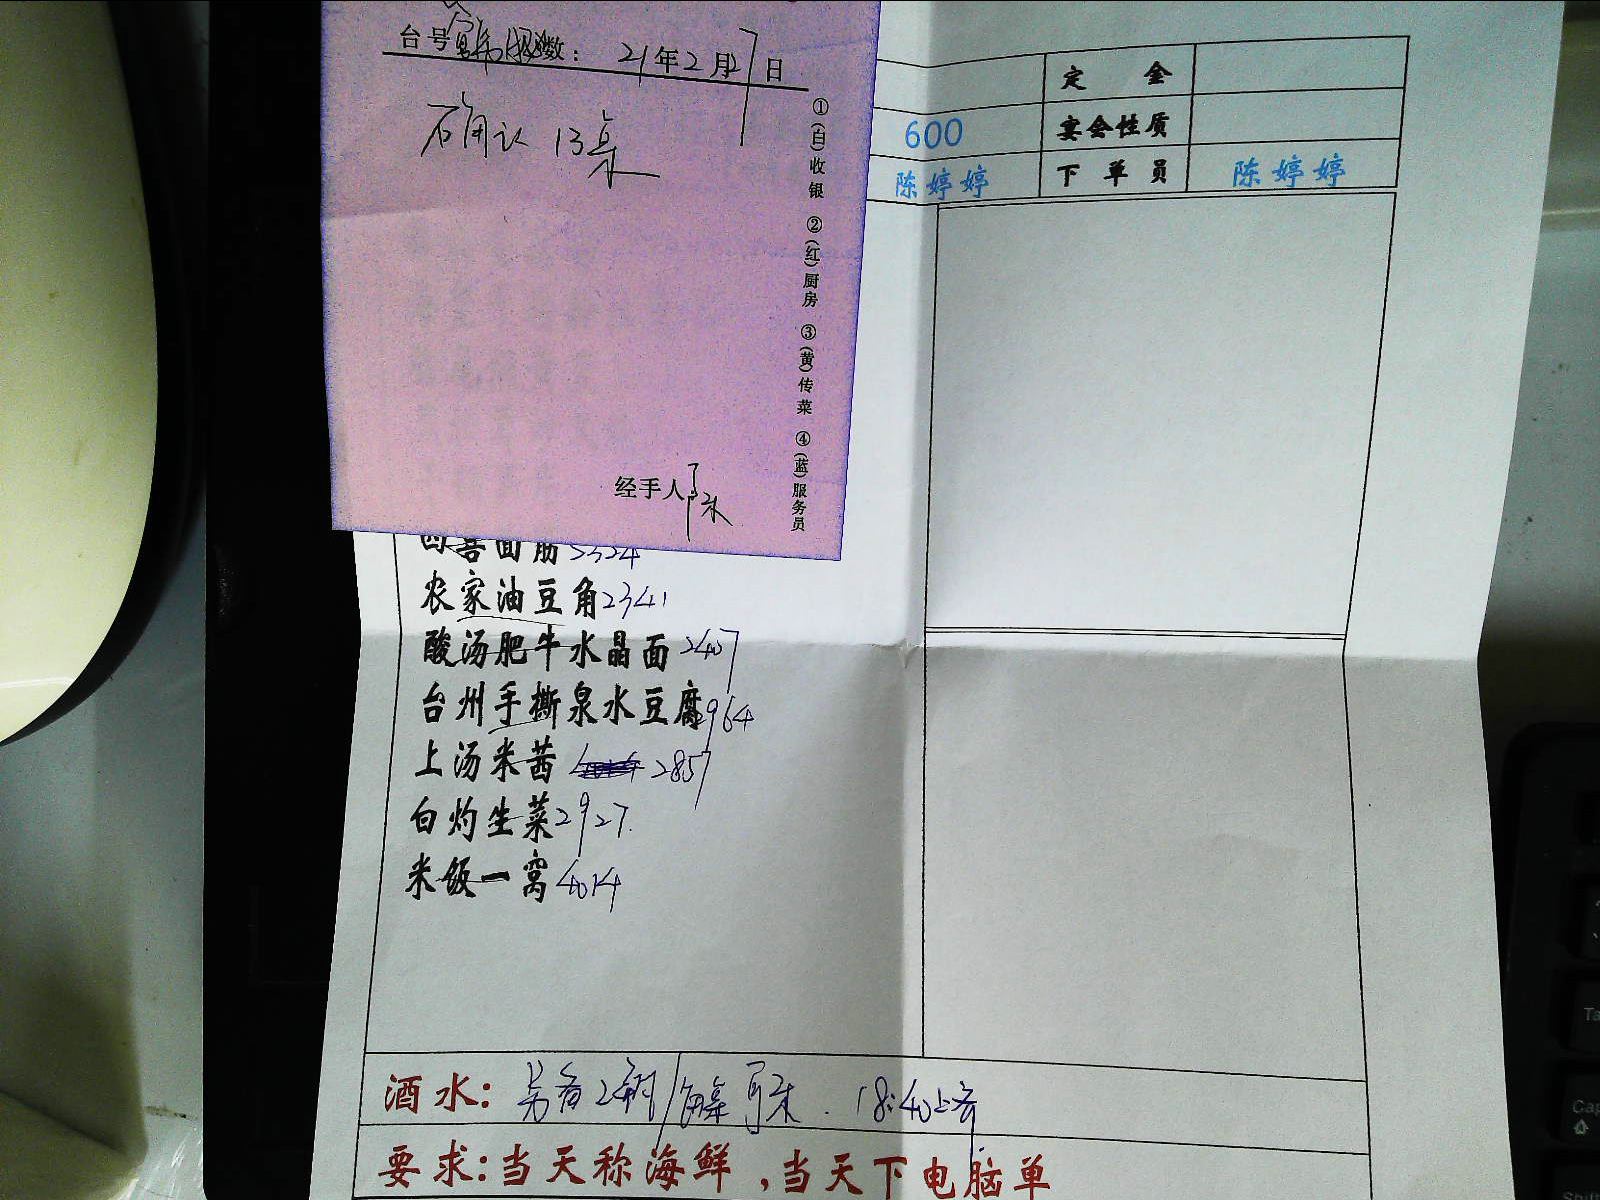 台号 数: 21年2月27日
确认 13桌
①(白)收银 ②(红)厨房 ③(黄)传菜 ④(蓝)服务员
经手人
定金
600 宴会性质
陈婷婷 下单员 陈婷婷
四喜面筋 2324
农家油豆角 2341
酸汤肥牛水晶面 2407
台州手撕泉水豆腐 2964
上汤米茜 2857
白灼生菜 2927
米饭一窝 4014
酒水: 另备2桌 18:40上齐
要求:当天称海鲜,当天下电脑单